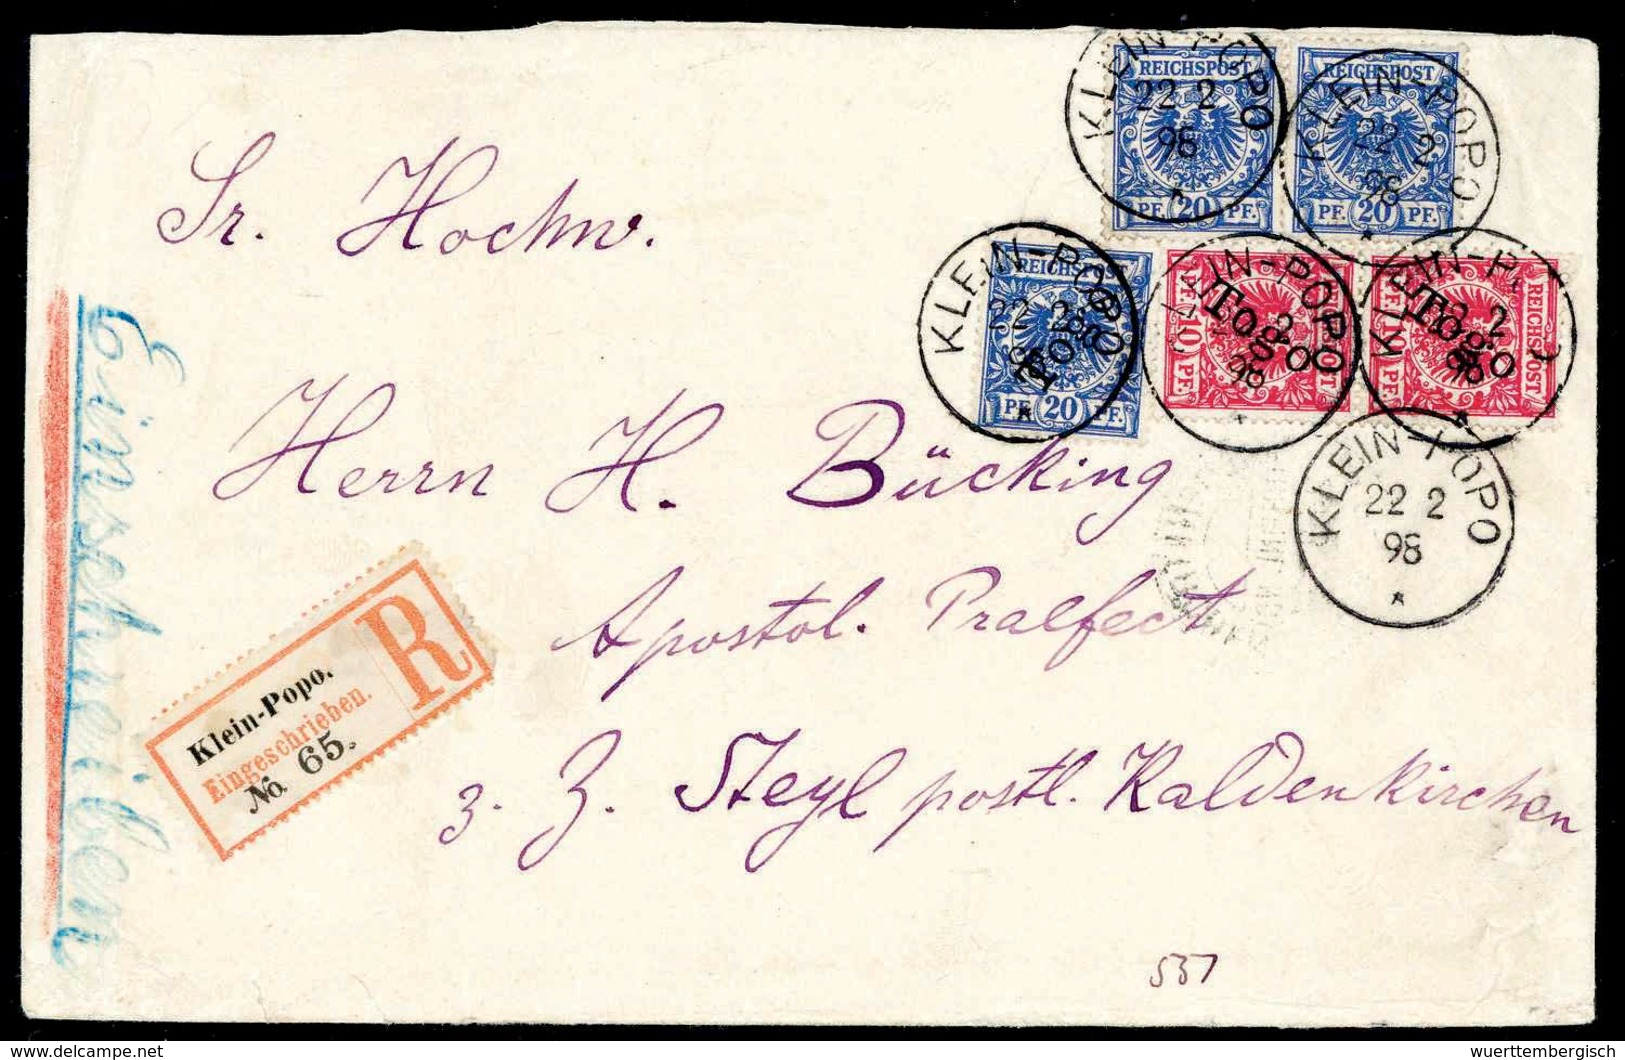 KLEIN-POPO
22 2
98
REICHSPOST
PF. 20 PF.
KLEIN-POPO
22 2
98
REICHSPOST
PF. 20 PF.
KLEIN-POPO
22 2
98
REICHSPOST
Togo
PF. 20 PF.
KLEIN-POPO
2
98
Togo
PF. 10 PF.
KLEIN-P
2
98
Togo
REICHSPOST
PF. 10 PF.
KLEIN-POPO
22 2
98
Sr. Hochw.
Herrn H. Bücking
Apostol. Praefect
z. Z. Steyl postl. Kaldenkirchen
Einschreiben
Klein-Popo.
Eingeschrieben.
No. 65.
R
537
© www.delcampe.net
wuerttembergisch